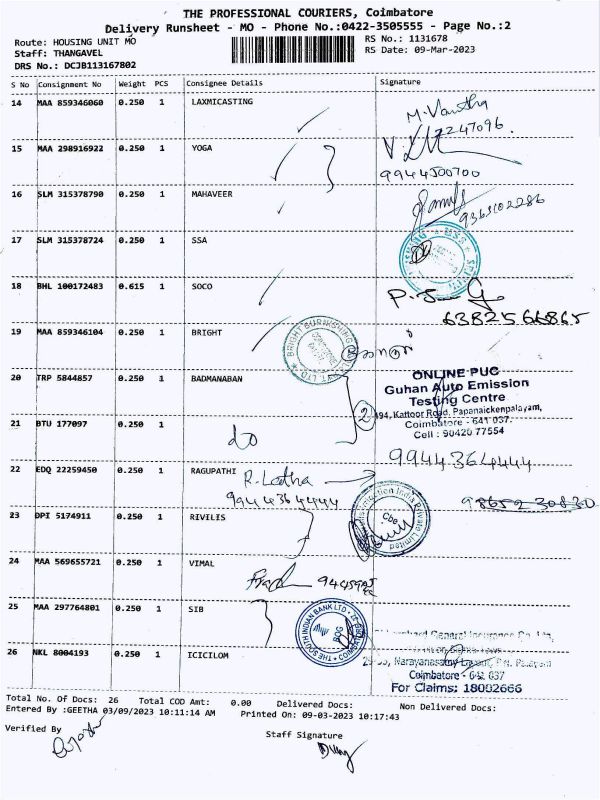 THE PROFESSIONAL COURIERS, Coimbatore
Delivery Runsheet - MO - Phone No.:0422-3505555 - Page No.:2
Route: HOUSING UNIT MO
RS No.: 1131678
Staff: THANGAVEL
RS Date: 09-Mar-2023
DRS No.: DCJB113167802
S No Consignment No Weight PCS Consignee Details Signature
14 MAA 859346060 0.250 1 LAXMICASTING
M. Vanitha
15 MAA 298916922 0.250 1 YOGA
9944500700
16 SLM 315378790 0.250 1 MAHAVEER
17 SLM 315378724 0.250 1 SSA
18 BHL 100172483 0.615 1 SOCO
6382566865
19 MAA 859346104 0.250 1 BRIGHT
20 TRP 5844857 0.250 1 BADMANABAN
ONLINE PUC
Guhan Auto Emission
Testing Centre
494, Kattoor Road, Papanaickenpalayam,
Coimbatore - 641 037.
Cell : 90420 77554
21 BTU 177097 0.250 1
2
9944364444
22 EDQ 22259450 0.250 1 RAGUPATHI
R. Latha
9944364444
98652 30830
23 DPI 5174911 0.250 1 RIVILIS
Cbe
24 MAA 569655721 0.250 1 VIMAL
25 MAA 297764801 0.250 1 SIB
THE SOUTH INDIAN BANK LTD
26 NKL 8004193 0.250 1 ICICILOM
Coimbatore - 641 037
For Claims: 18002666
Total No. Of Docs: 26 Total COD Amt: 0.00 Delivered Docs: Non Delivered Docs:
Entered By :GEETHA 03/09/2023 10:11:14 AM Printed On: 09-03-2023 10:17:43
Verified By
Staff Signature